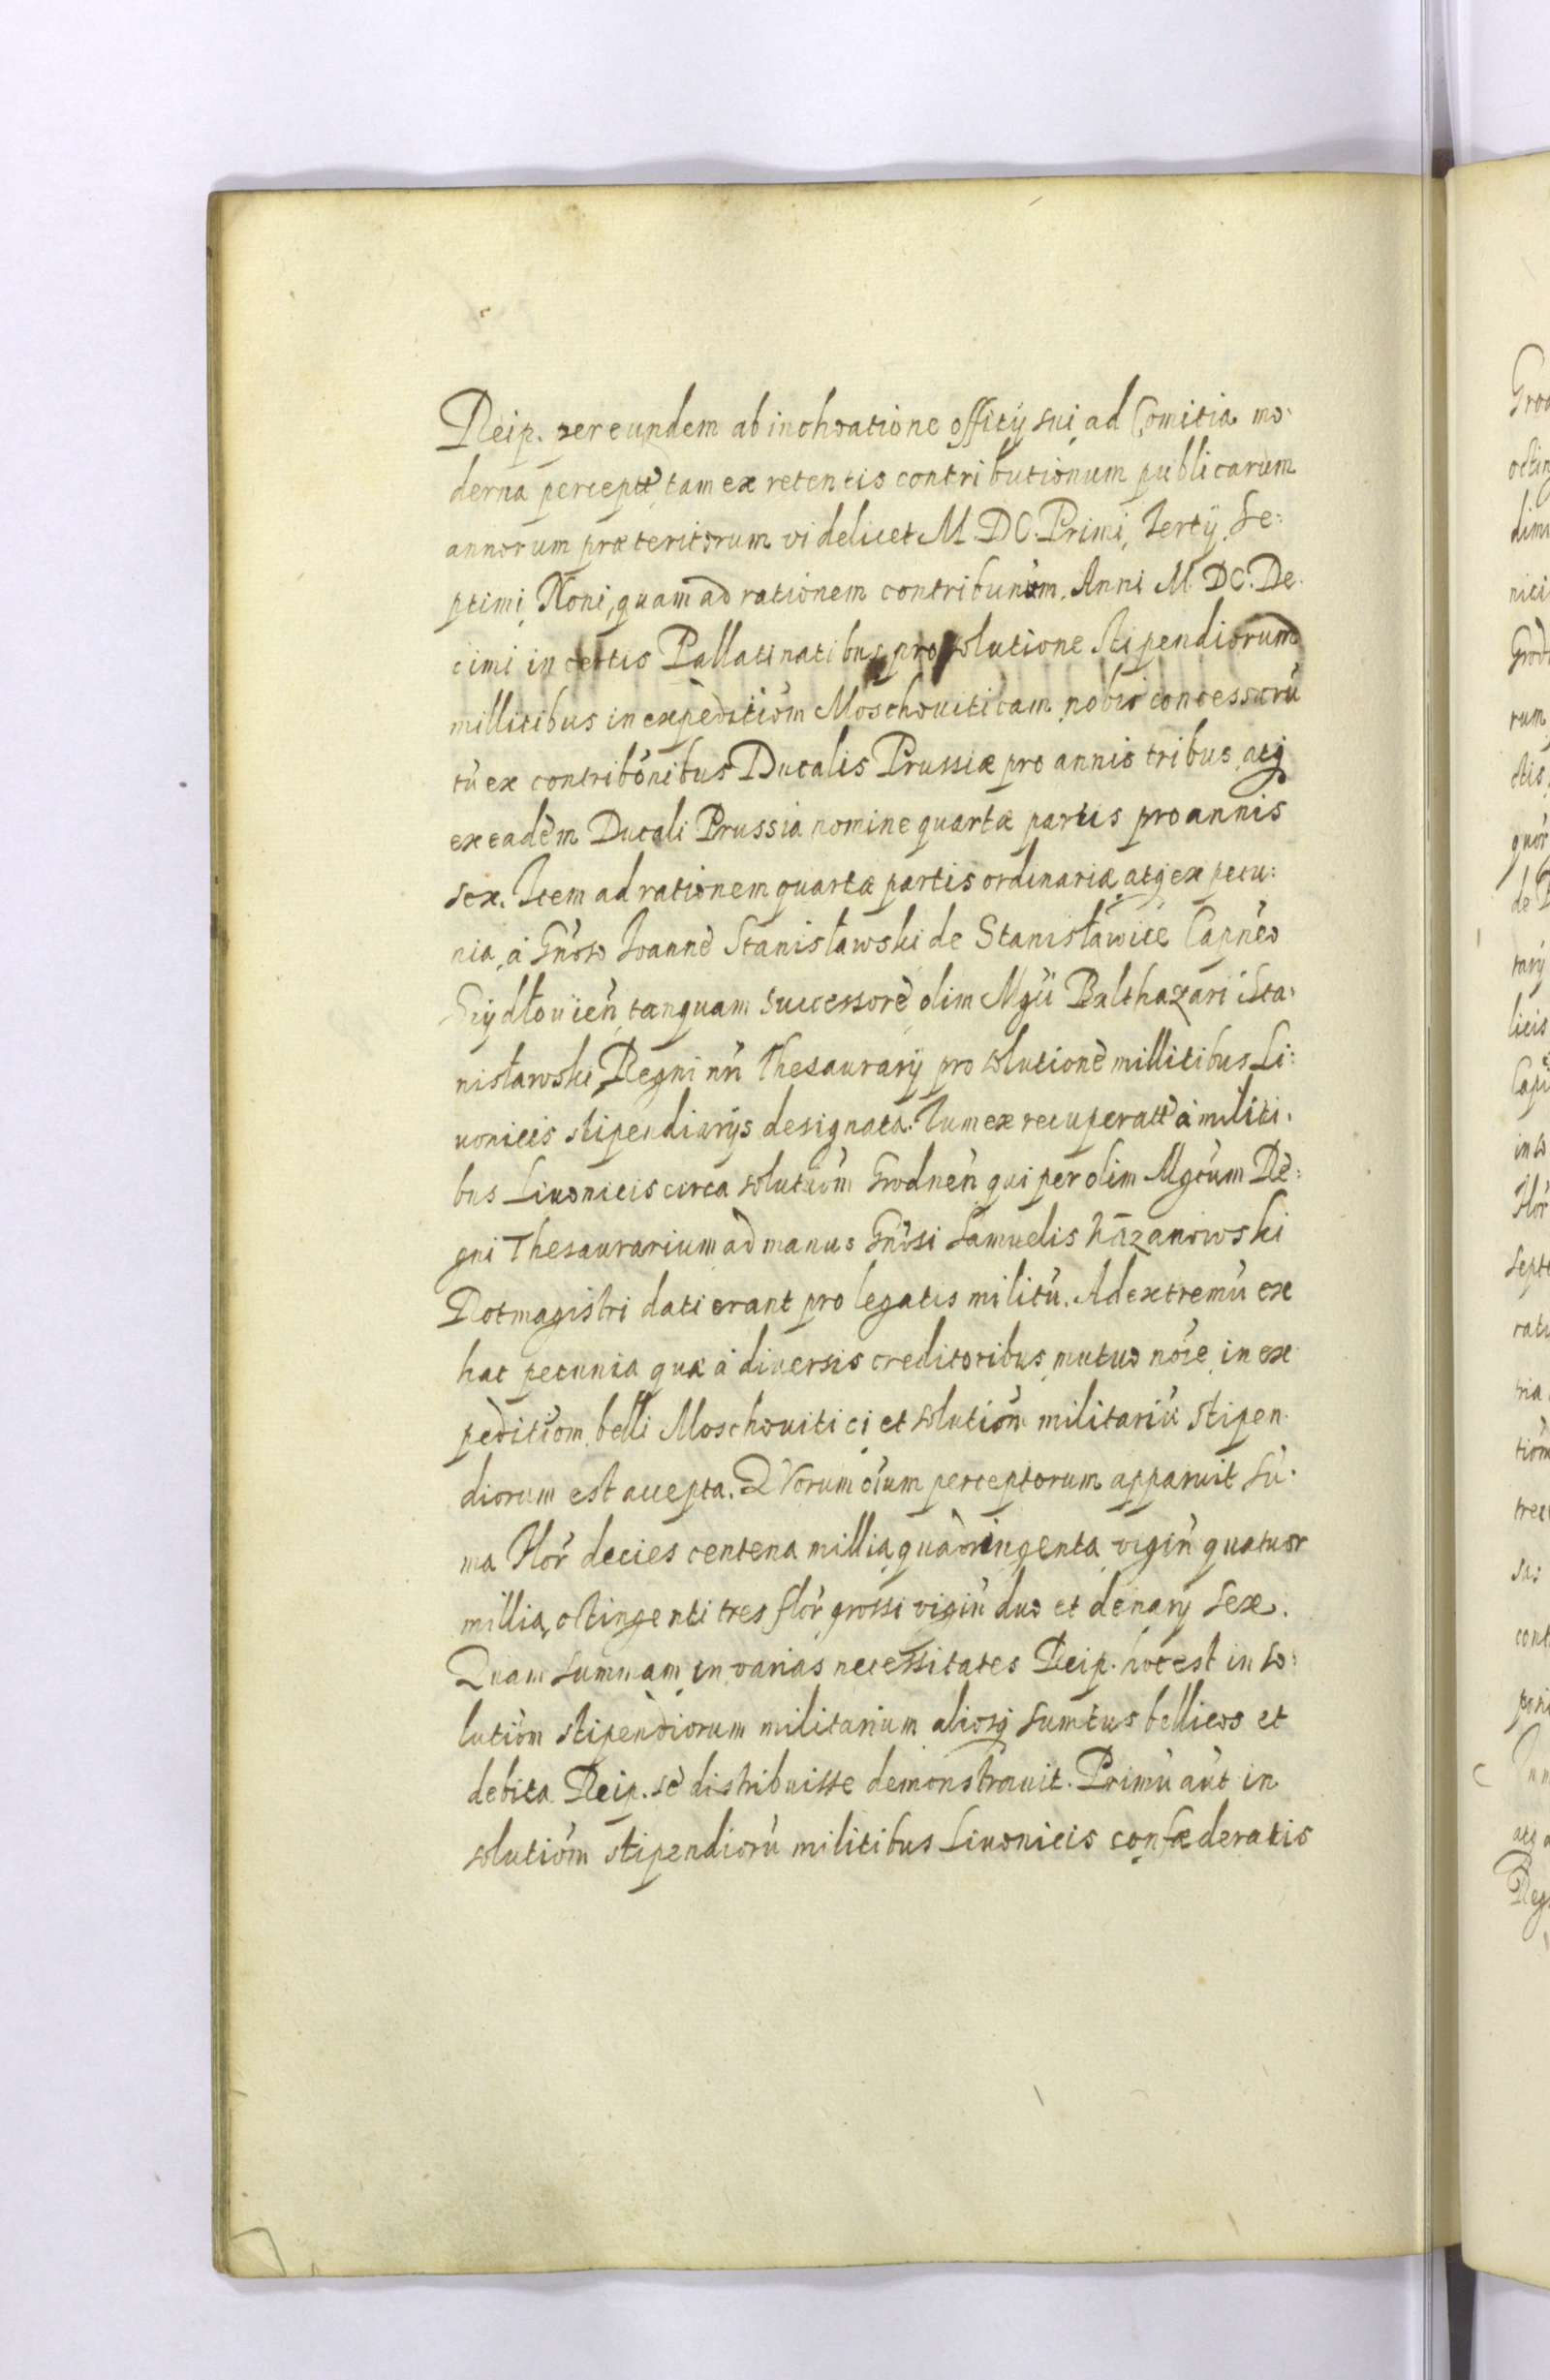 Reip. per eundem ab inchoatione offitÿ sui ad Comitia mo:
derna percepte tam ex retentis contributionum publicarum
annorum præteritorum videlicet M. DC. Primi, Tertÿ, Se:
ptimi, Noni, quam ad rationem contribunom. Anni M. DC. De
cimi in certis Pallatinatibus pro solutione Stipendiorum
millitibus in expeditiom Moschouiticam nobis concessarū
tū ex contribonibus Ducalis Prussiæ pro annis tribus, atq
ex eadem Ducali Prussia nomine quartæ partis pro annis
sex. Item ad rationem quartæ partis ordinariæ, atq ex pecu:
nia, à Gnoso Joanne Stanisławski de Stanisławice Capneo
Siÿdłouien tanquam successore olim Mgci Balthazari Sta:
nisławski, Regni nri Thesaurarÿ pro solutione millitibus Li:
uonicis stipendiarÿs designata. Tum ex recuperatt à militi:
bus Liuonicis circa solutiom Grodnen qui per olim Mgcum Re:
gni Thesaurarium ad manus Gnosi Samuelis Kazanowski
Rotmagistri dati erant pro legatis militū. Ad extremū ex
hac pecunia quæ à diuersis creditoribus, mutuo noie, in ex
peditiom belli Moschouitici et solutiom militariū stipen
diorum est accepta. QVorum oium perceptorum apparuit Sū:
ma Flor decies centena millia, quadringenta vigin quatuor
millia, octingenti tres flor grossi vigin duo et denarÿ sex.
Quam summam in varias necessitates Reip. hoc est in so:
lutiom stipendiorum militarium aliosq sumtus bellicos et
debita Reip. se distribuisse demonstrauit. Primū aut in
solutiom stipendiorū militibus Liuonicis confæderatis